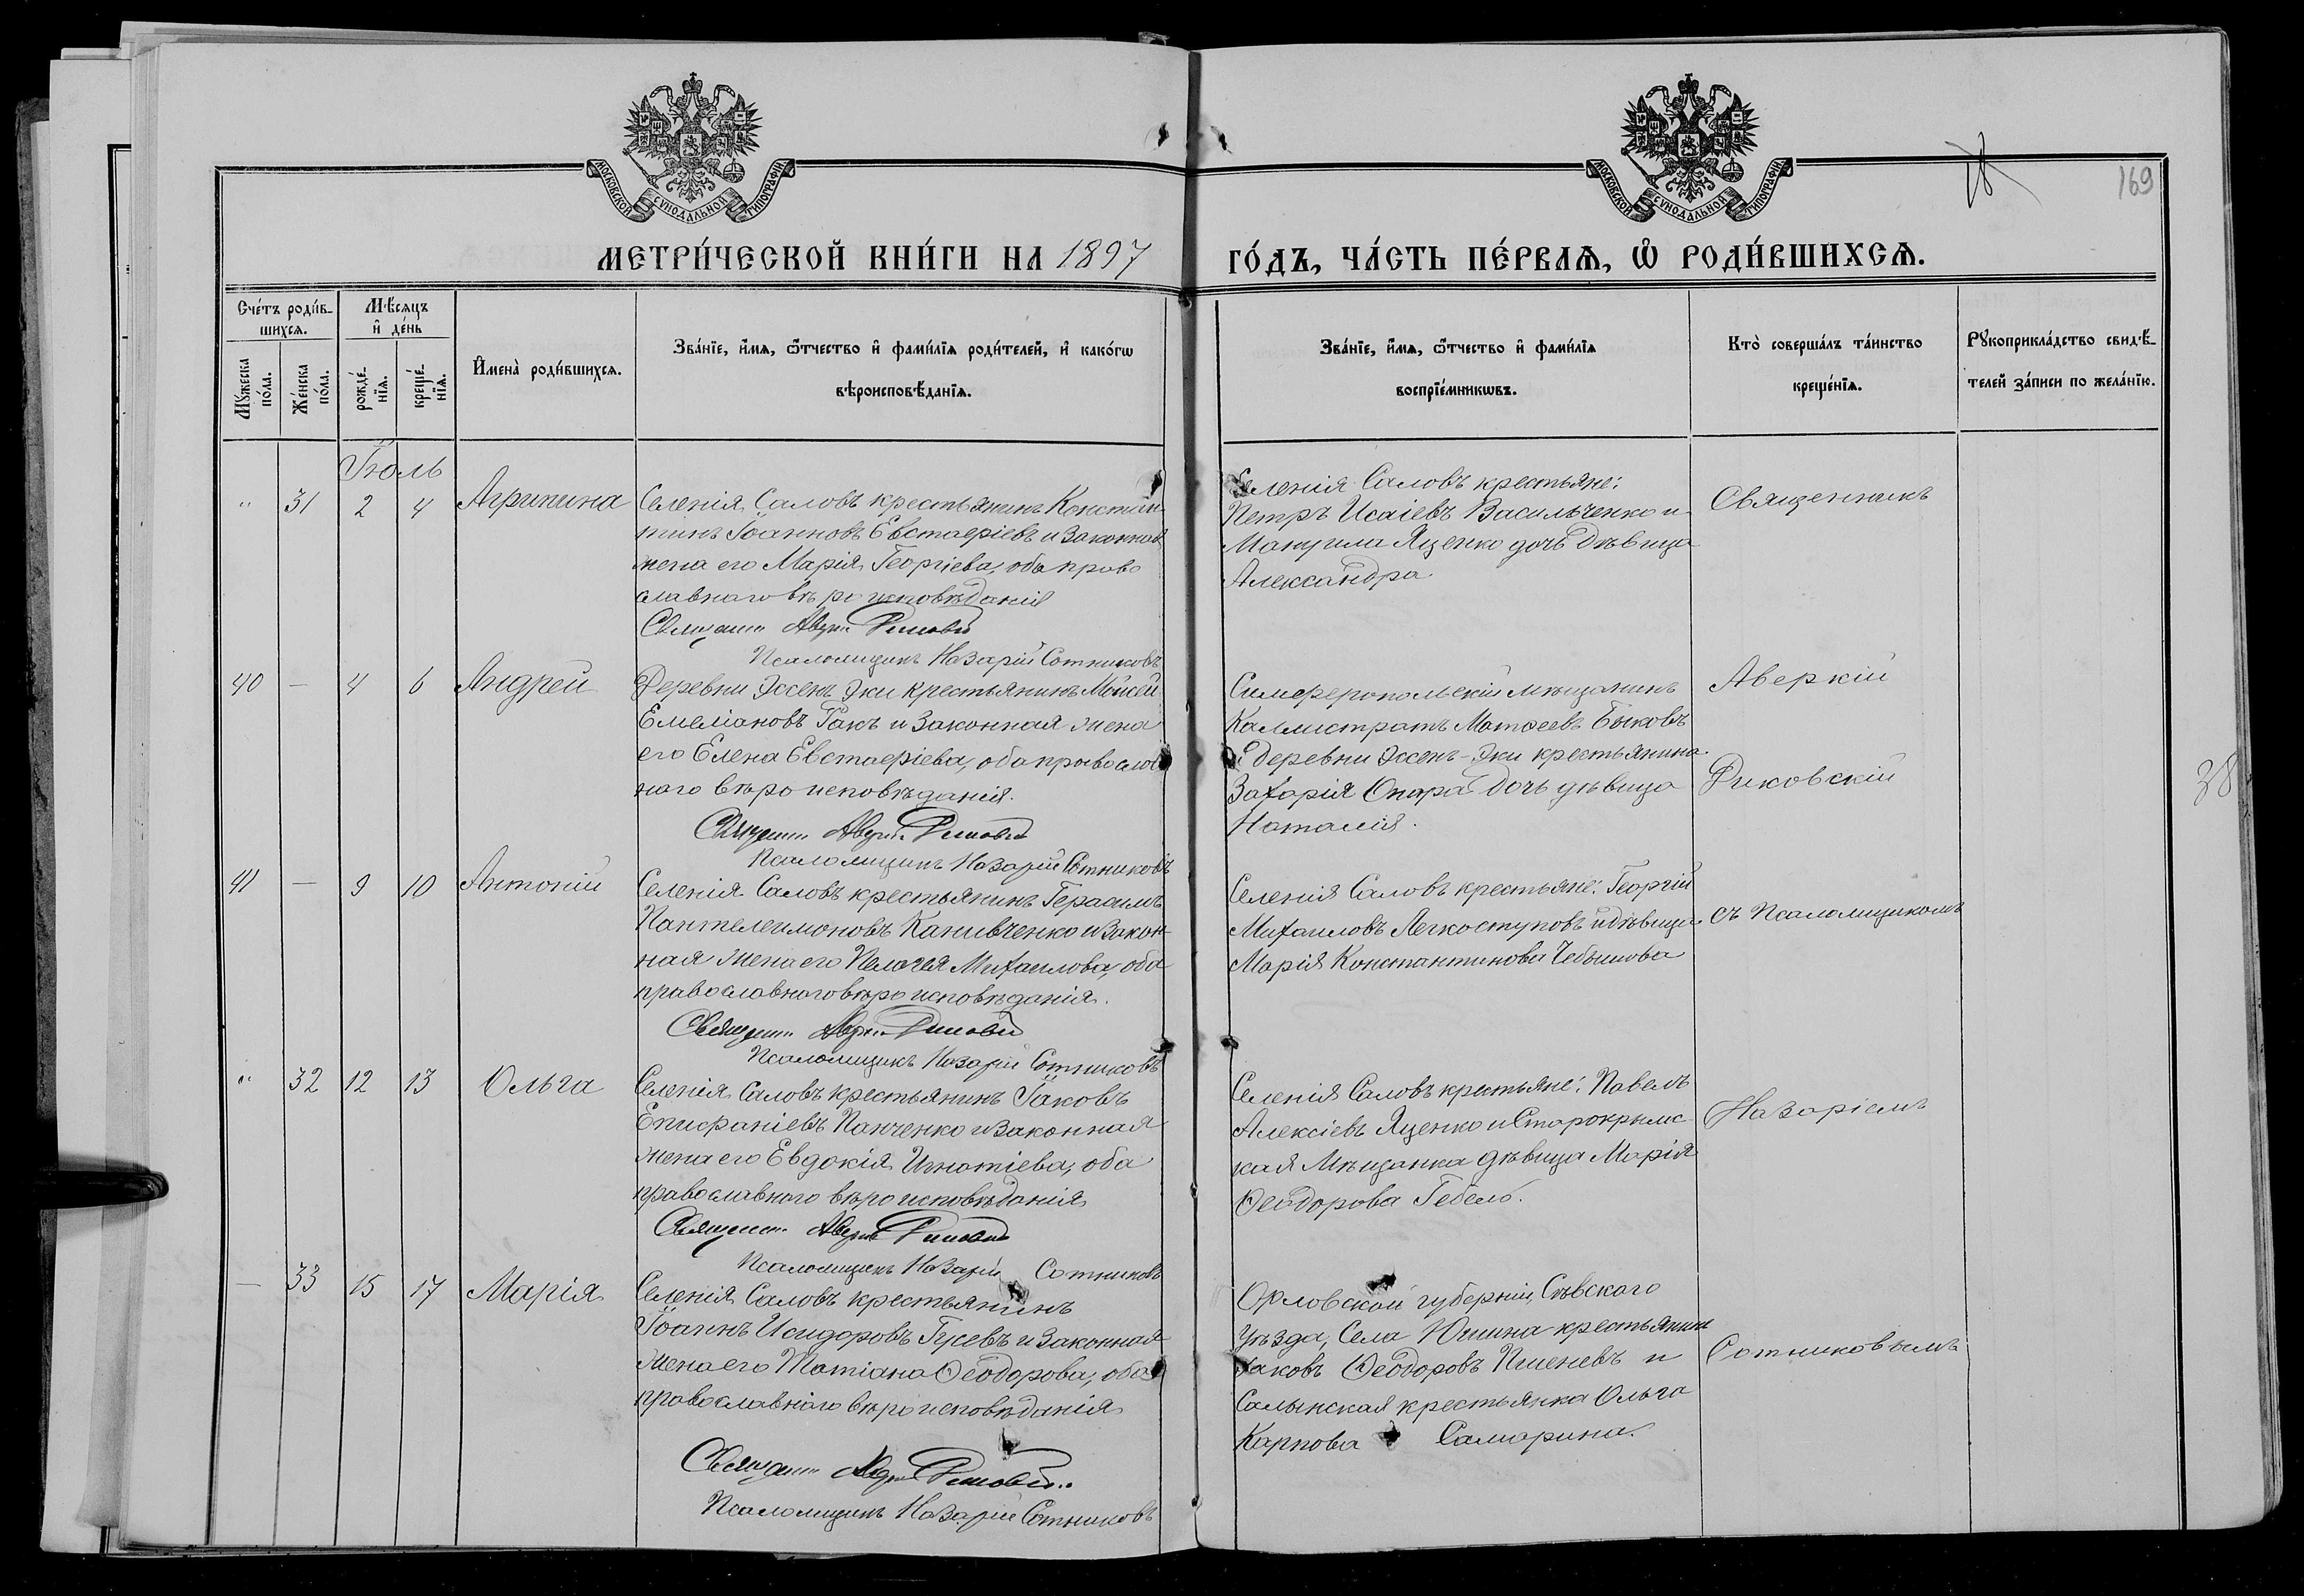 МОСКОВСКОЙ СѴНОДАЛЬНОЙ ТИПОГРАФІИ
МОСКОВСКОЙ СѴНОДАЛЬНОЙ ТИПОГРАФІИ
169
МЕТРИ́ЧЕСКОЙ КНИ́ГИ НА 1897
ГО́ДЪ, ЧА́СТЬ ПЕ́РВАѦ, Ѡ҆ РОДИ́ВШИХСѦ.
Сче́тъ роди́в-
шихсѧ.
Мѣ́сѧцъ
и҆ де́нь
Мꙋ́жеска по́ла.
Же́нска по́ла.
рожде́-
нїѧ.
креще́-
нїѧ.
И҆мена̀ роди́вшихсѧ.
Зва́нїе, и҆́мѧ, ѻ҆́тчество и҆ фами́лїѧ роди́телей, и҆ како́гѡ
вѣроисповѣ́данїѧ.
Зва́нїе, и҆́мѧ, ѻ҆́тчество и҆ фами́лїѧ
воспрїе́мникѡвъ.
Кто̀ соверша́лъ та́инство
креще́нїѧ.
Рꙋкоприкла́дство свидѣ́-
телей за́писи по жела́нїю.
Іюль
" 31 2 4 Агрипина
Селенія Саловъ крестьянинъ Констан
тинъ Іоанновъ Евстаѳіевъ и законная
жена его Марія Георгіева, оба право
славнаго вѣроисповѣданія
Священн. Аверкій Риковскій
Псаломщикъ Назарій Сотниковъ
Селенія Саловъ крестьяне:
Петръ Исаіевъ Васильченко и
Яценко дочь дѣвица
Александра
Священникъ
40 — 4 6 Андрей
Деревни Эссенъ Эки крестьянинъ Моисей
Емеліановъ Гакъ и законная жена
его Елена Евстаѳіева, оба православ
наго вѣроисповѣданія.
Священн. Аверкій Риковскій
Псаломщикъ Назарій Сотниковъ
Симферопольскій мѣщанинъ
Каллистратъ Матѳеевъ Быковъ
и деревни Эссенъ-Эки крестьянина
Захарія Опара дочь дѣвица
Наталія.
Аверкій
Риковскій
38
41 — 9 10 Антоній
Селенія Саловъ крестьянинъ Герасимъ
Пантелеимоновъ Канивченко и закон-
ная жена его Пелагея Михаилова, оба
православнаго вѣроисповѣданія.
Священн. Аверкій Риковскій
Псаломщикъ Назарій Сотниковъ
Селенія Саловъ крестьяне: Георгій
Михаиловъ Легкоступовъ и дѣвица
Марія Константинова Чебышова
съ Псаломщикомъ
" 32 12 13 Ольга
Селенія Саловъ крестьянинъ Іаковъ
Епифаніевъ Панченко и законная
жена его Евдокія Игнатіева, оба
православнаго вѣроисповѣданія
Священн. Аверкій Риковскій
Псаломщикъ Назарій Сотниковъ
Селенія Саловъ крестьяне: Павелъ
Алексіевъ Яценко и Старокрымс
кая мѣщанка дѣвица Марія
Ѳеодорова Гебель.
Назаріемъ
— 33 15 17 Марія
Селенія Саловъ крестьянинъ
Іоаннъ Исидоровъ Гусевъ и законная
жена его Татіана Ѳеодорова, оба
православнаго вѣроисповѣданія
Священн. Аверкій Риковскій
Псаломщикъ Назарій Сотниковъ
Орловской губерніи, Сѣвского
уѣзда, села Юшина крестьянинъ
Іаковъ Ѳеодоровъ Пшеневъ и
Салынская крестьянка Ольга
Карпова Самарина.
Сотниковымъ